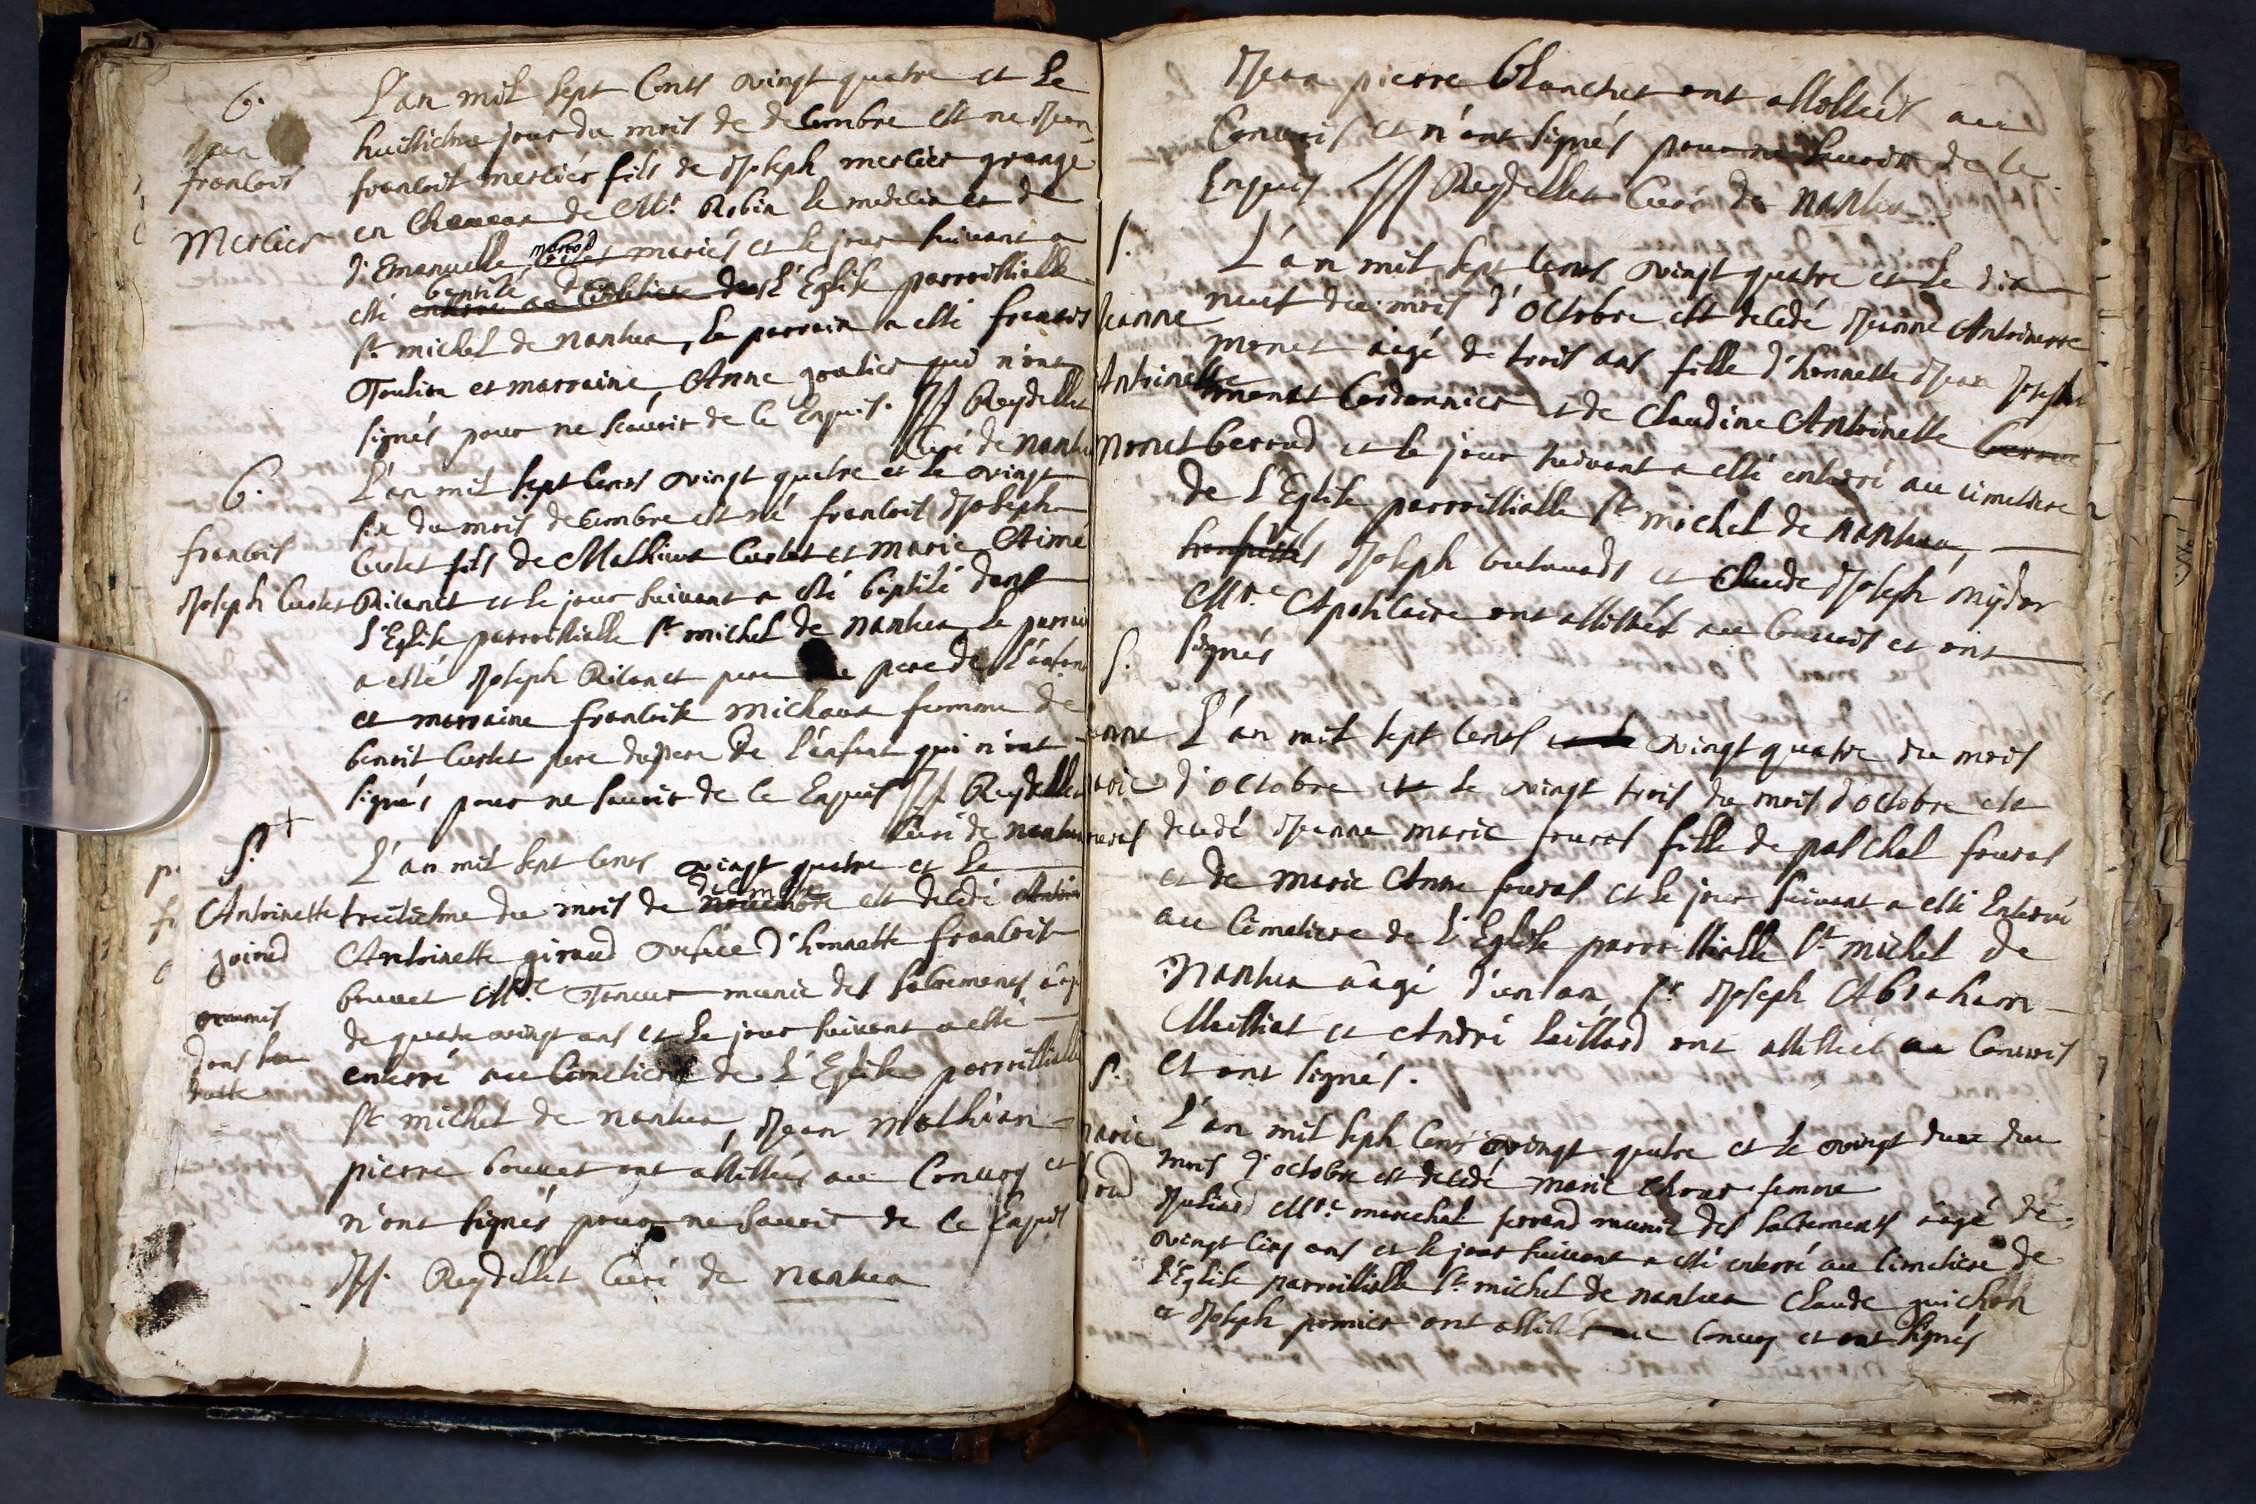 6.
Jean
francois
Mercier
L'an mil sept Cents vingt quatre et Le
huictiesme jour du mois de decembre est ne Jean
francois mercier fils de Joseph mercier grangé
en de Mr. Robin le medecin et de
d'Emanuelle mariés et le jour suivant a
esté baptisé dans L'Eglise parroissialle
St. michel de nantua, Le parrain a esté francois
Toulion et marraine, Anne goutier qui n'ont
signés pour ne scavoir de ce Enquis. JJ Reydellet
Curé de nantua
6.
francois
Joseph Curtet
L'an mil sept Cents vingt quatre et Le vingt
six du mois decembre est né francois Joseph
Curtet fils de Mathieux Curtet et marie Aimé
Rilanet et le jour suivant a esté baptisé dans
L'Eglise parroissialle St. michel de nantua Le parrain
a esté Joseph Rilanet pere de L'enfant
et marraine francoise michaux femme de
benoit Curtet pere du pere de l'enfant qui n'ont
signés pour ne savoir de ce Enquis JJ Reydellet
Curé de nantua
S. +
Antoinette
goiraud
ommis
dans sa
datte
L'an mil sept Cents vingt quatre et Le
treiziesme du mois de decembre novembre est decedé
Antoinette giraud vefue d'honnette francois
bouvet Mre. Taneur munie des sacremens âgé
de quatre vingt ans et Le jour suivant a esté
enterré au Cimetiere de L'Eglise parroissialle
St. michel de nantua, Jean Mathian
pierre bouvet ont assistés au Convoy et
n'ont signés pour ne savoir de ce Enquis
JJ. Reydellet Curé de nantua
Jean pierre Blanchet ont assistés au
Convois et n'ont signés pour ne savoir de ce
Enquis JJ Reydellet Curé de nantua
S.
Jeanne
Antoinette
monet
L'an mil sept Cents vingt quatre et Le dix
neuf du mois d'octobre est decedé Jeanne Antoinette
monet âgé de trois ans fille d'honnette Jean Joseph
monet Cordonnier et de Claudine Antoinette
berrod et le jour suivant a esté enterré au cimetiere
de L'Eglise parroissialle St. michel de nantua,
Joseph et Claude Joseph mydor
Mre. Apoticaire ont assistés au Convois et ont
signés
S.
L'an mil sept Cents vingt quatre du mois
d'octobre et le vingt trois du mois d'octobre est
decedé Jeanne marie fouras fille de paschal fouras
et de marie Anne fouras et le jour suivant a esté Enterré
au Cimetiere de L'Eglise parroissialle St. michel de
Nantua âagé d'un an, Sr. Joseph Abraham
Mailliat et André Laillard ont assistés au Convois
et ont signés.
S.
marie
L'an mil seph Cens vingt quatre et le vingt deux du
mois d'octobre est decedé marie femme
Juliard Mre. marechal ferrand munie des sacremens âgé de
vingt Cinq ans et le jour suivant a esté enterré au Cimetiere de
L'Eglise parroissialle St. michel de nantua Claude guichon
et Joseph pornier ont assistés au Convoy et ont signés